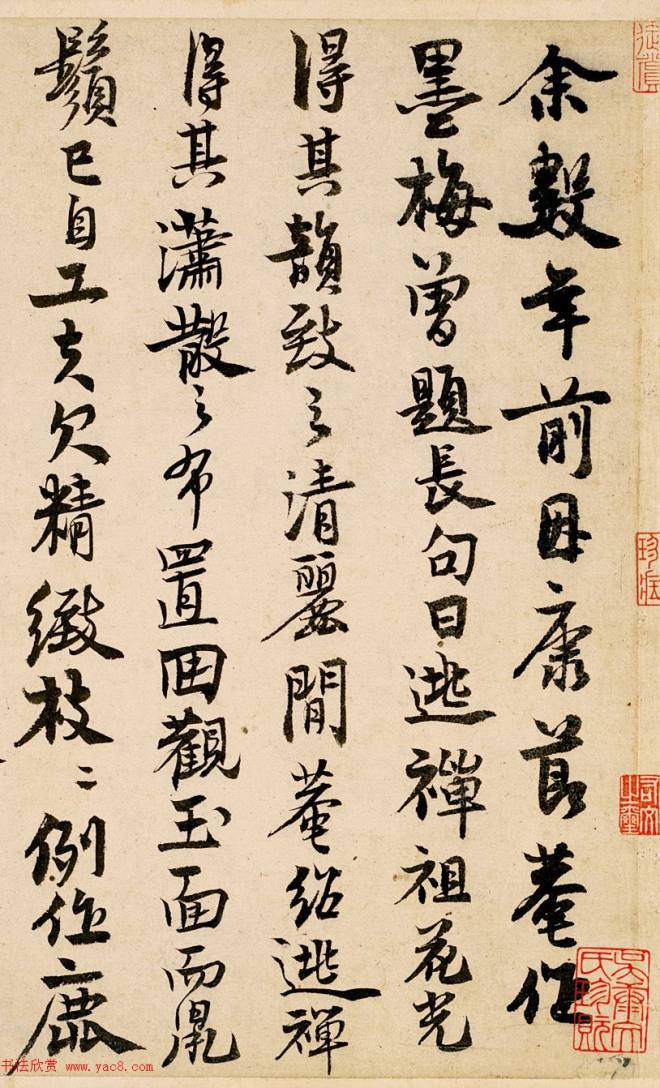 余數年前康節菴作
墨梅曾題長句曰逃禪祖花光
得其韻致之清麗閒菴紹逃禪
得其瀟散之布置回觀玉面而鼠
鬚已自工夫欠精緻枝〻例作鹿
书法欣赏 www.yac8.com